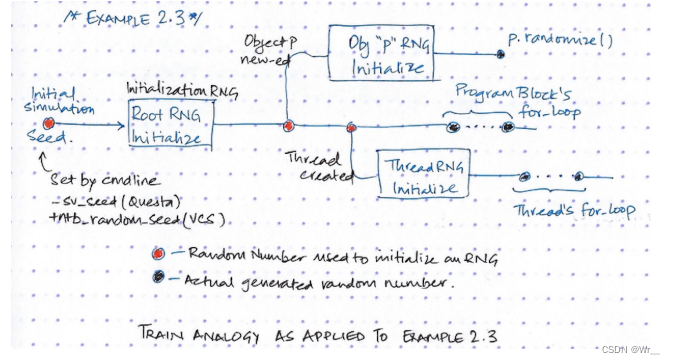 /* EXAMPLE 2.3 */
Object p
new-ed
Obj "p" RNG
Initialize
p.randomize()
Initial
simulation
Seed.
Initialization RNG
Root RNG
Initialize
Program Block's
for-loop
Thread
created
Thread RNG
Initialize
Thread's for-loop
Set by cmdline
-sv_seed (Questa)
+ntb_random_seed (VCS)
- Random Number used to initialize an RNG
- Actual generated random number.
TRAIN ANALOGY AS APPLIED TO EXAMPLE 2.3
CSDN @Wr__